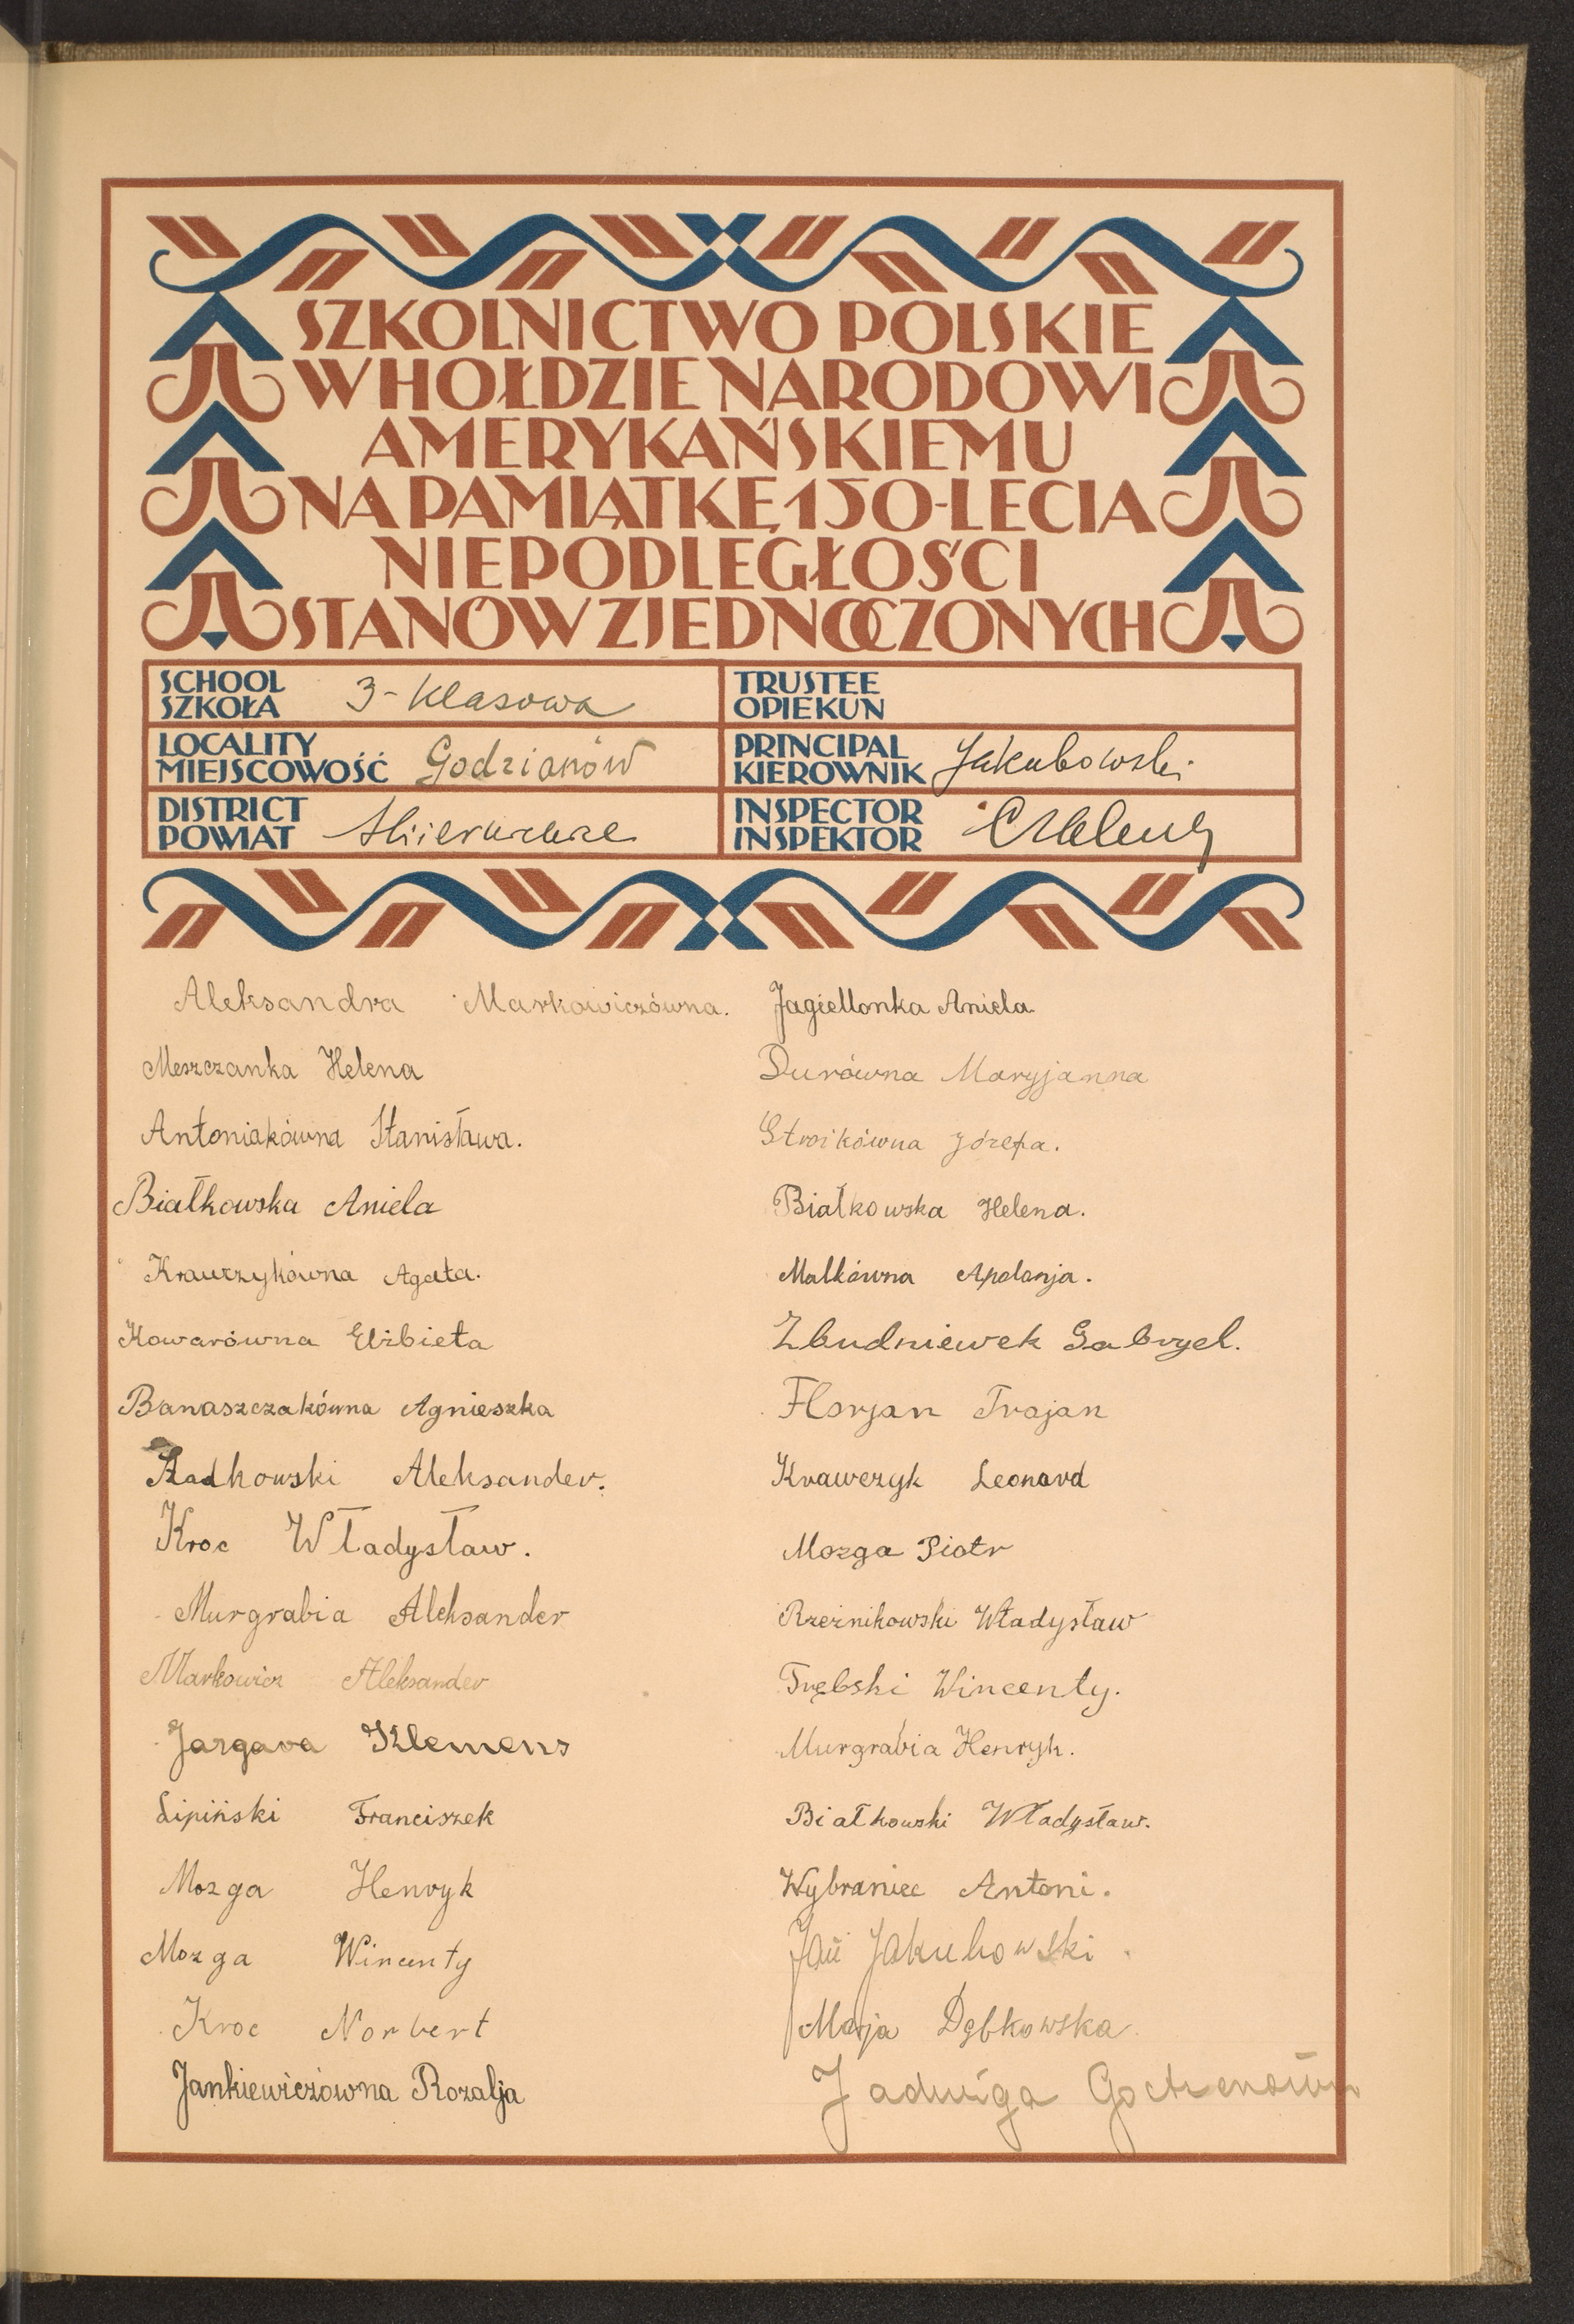 SZKOLNICTWO POLSKIE
W HOŁDZIE NARODOWI
AMERYKAŃSKIEMU
NA PAMIĄTKĘ 150-LECIA
NIEPODLEGŁOŚCI
STANÓW ZJEDNOCZONYCH
SCHOOL
SZKOŁA
3-klasowa
TRUSTEE
OPIEKUN
LOCALITY
MIEJSCOWOŚĆ
Godzianów
PRINCIPAL
KIEROWNIK
Jakubowski
DISTRICT
POWIAT
INSPECTOR
INSPEKTOR
Aleksandra Markowiczówna.
Meszczanka Helena
Antoniakówna Stanisława.
Białkowska Aniela
Krawczykówna Agata.
Kowarówna Elżbieta
Banaszczakówna Agnieszka
Aleksander.
Kroc Władysław.
Murgrabia Aleksander
Markowicz Aleksander
Jargara Klemens
Lipiński Franciszek
Mozga Henryk
Mozga Wincenty
Kroc Norbert
Jankiewiczówna Rozalja
Jagiellonka Aniela
Durówna Maryjanna
Stroikówna Józefa.
Białkowska Helena.
Malkówna Apolonja.
Zbudniewek Gabryel.
Florjan Trajan
Krawczyk Leonard
Mozga Piotr
Rzeźnikowski Władysław
Trębski Wincenty.
Murgrabia Henryk.
Białkowski Władysław.
Wybraniec Antoni.
Jan Jakubowski.
Marja Dębkowska.
Jadwiga